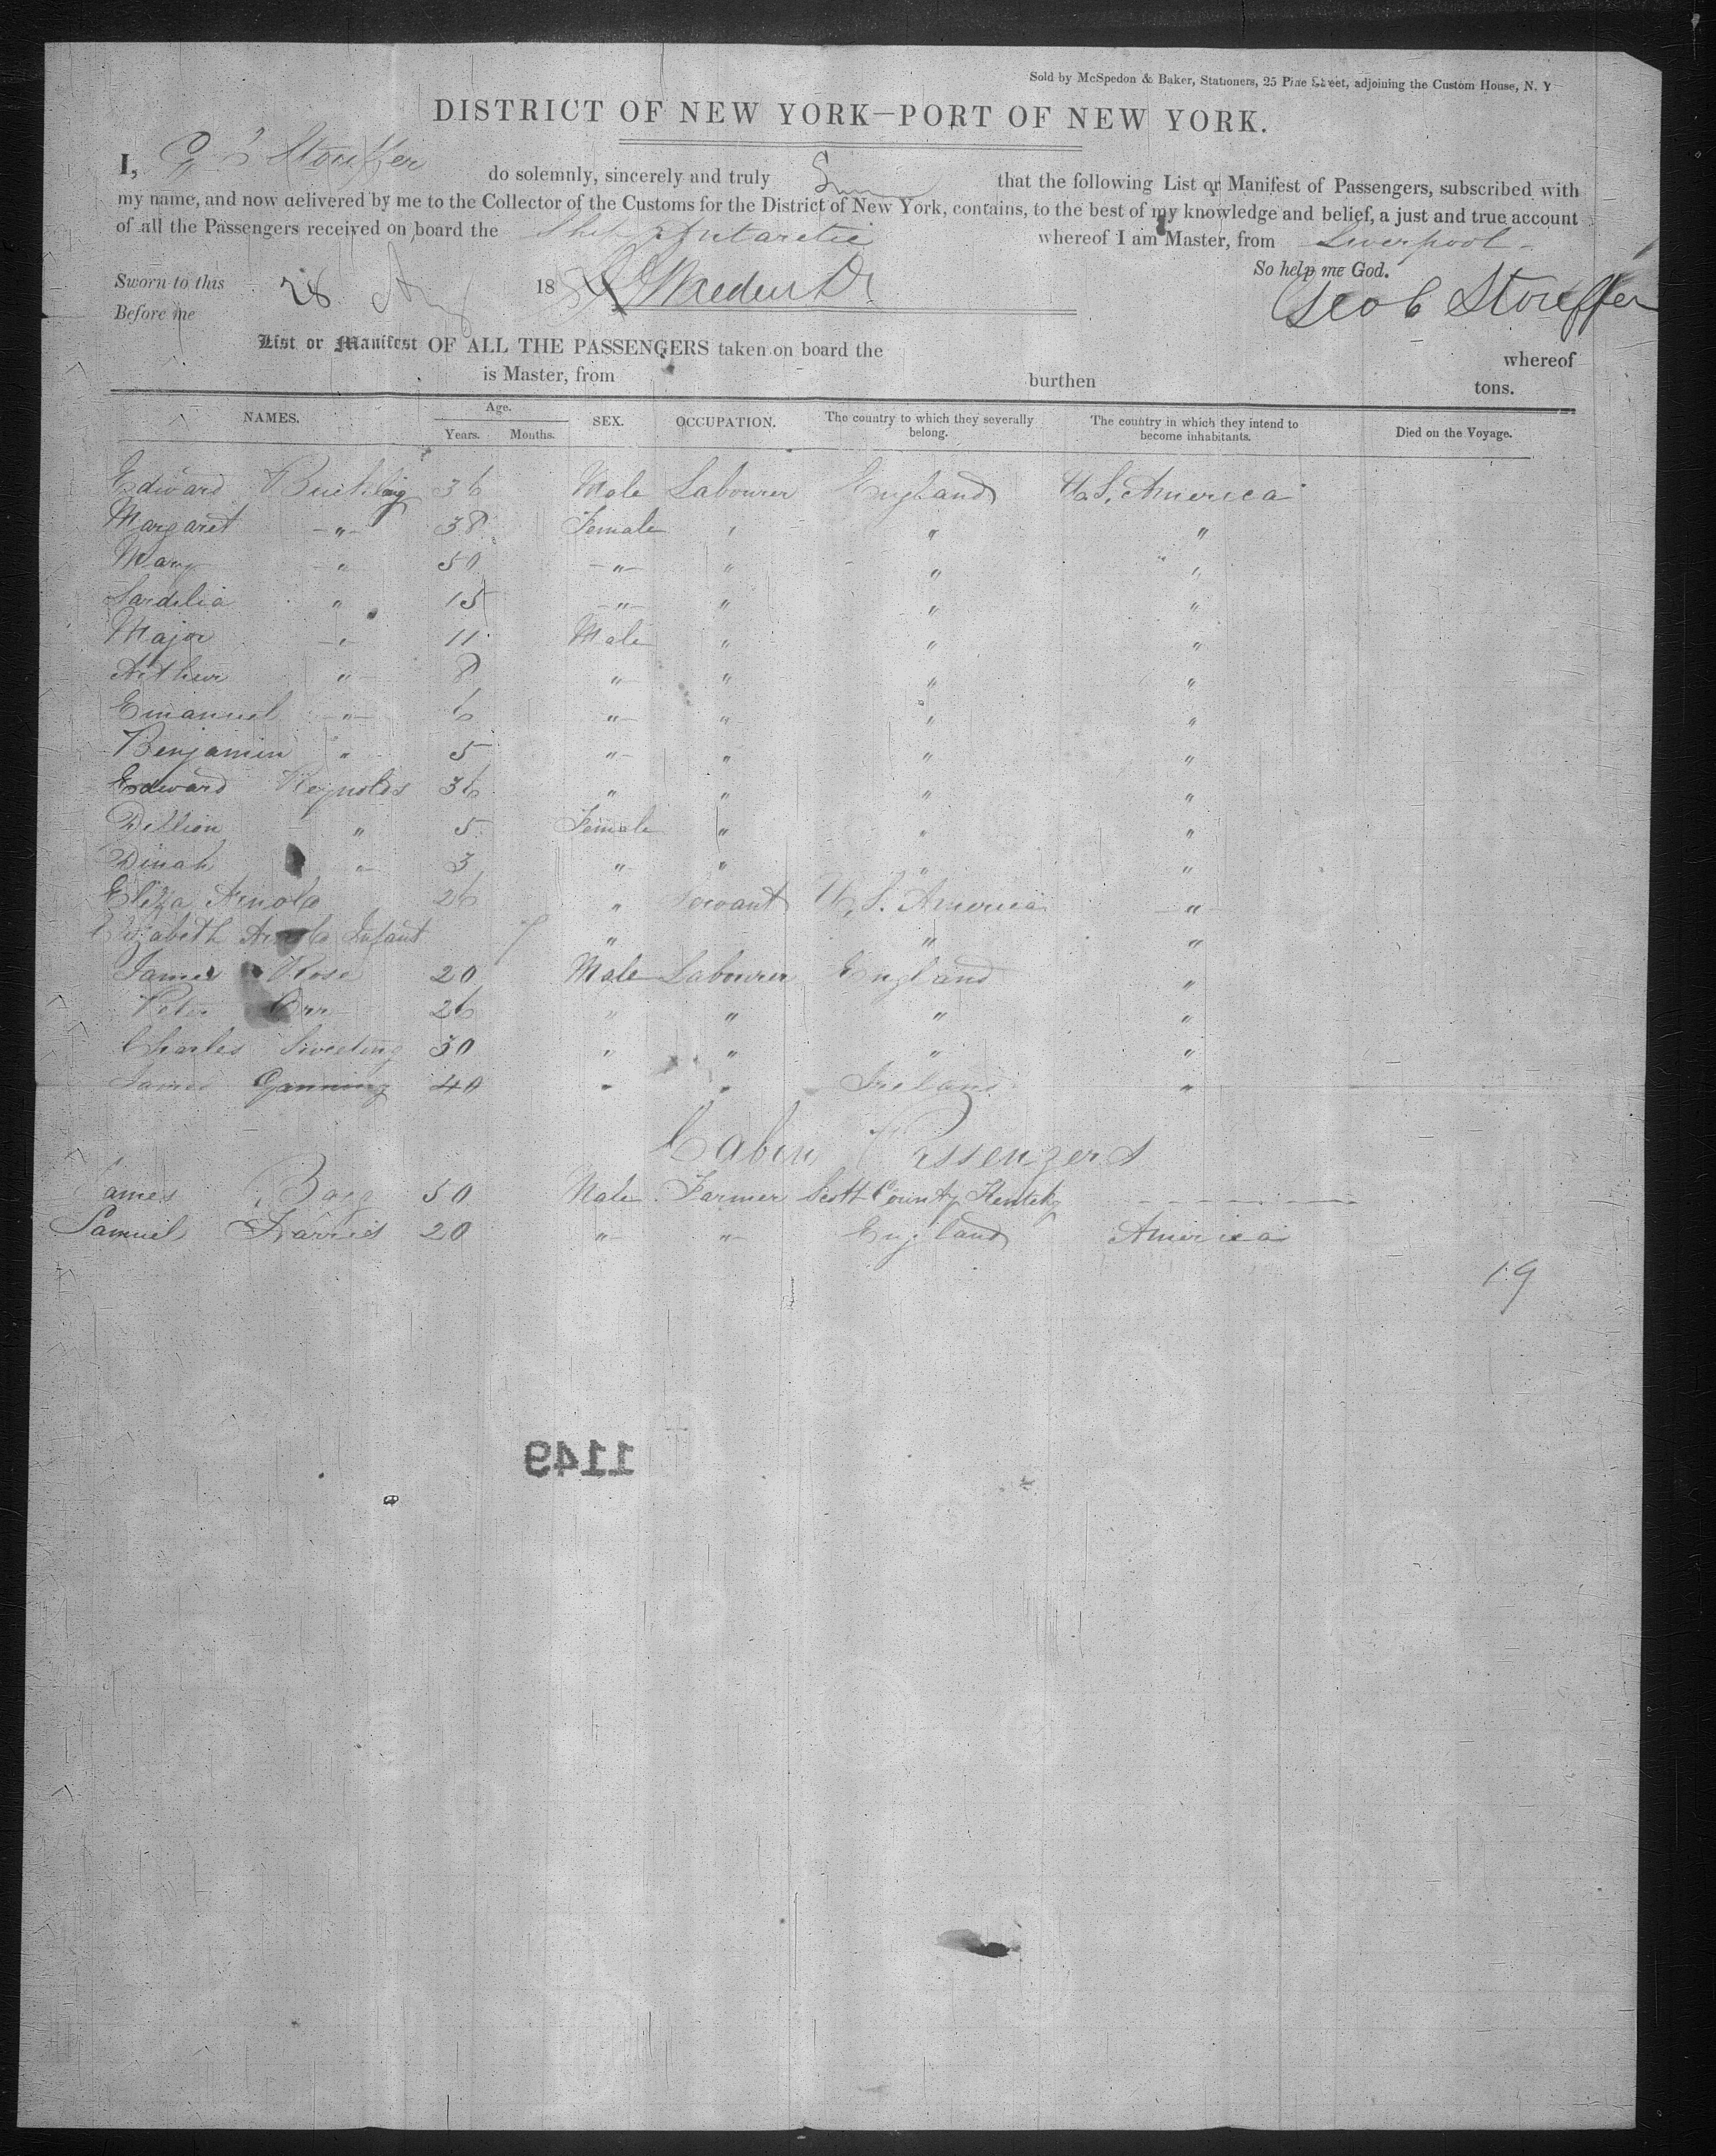 Sold by McSpedon & Baker, Stationers, 25 Pine Street, adjoining the Custom House, N. Y
DISTRICT OF NEW YORK—PORT OF NEW YORK.
I, G C Stouffer do solemnly, sincerely and truly that the following List or Manifest of Passengers, subscribed with
my name, and now delivered by me to the Collector of the Customs for the District of New York, contains, to the best of my knowledge and belief, a just and true account
of all the Passengers received on board the Ship Antarctic whereof I am Master, from Liverpool -
So help me God.
Sworn to this 28 Aug 18
Before me
Geo C Stouffer
List or Manifest OF ALL THE PASSENGERS taken on board the whereof
is Master, from burthen tons.
NAMES. Age. Years. Months. SEX. OCCUPATION. The country to which they severally belong. The country in which they intend to become inhabitants. Died on the Voyage.
Edward 36 Male Labourer England U.S. America
Margaret -"- 38 Female " " "
Mary " 50 -"- " " "
Sardelia " 15 -"- " " "
Major " 11 Male " " "
Arthur " 8 " " " "
Emanuel " 6 " " " "
Benjamin " 5 " " " "
Edward Reynolds 36 " " " "
" 5 Female " " "
Dinah " 3 " " " "
Eliza Arnold 26 " Servant U.S. America "
Elizabeth Arnold Infant 7 " " "
James Rose 20 Male Labourer England "
Peter 26 " " " "
Charles Sweeting 30 " " " "
James Ganning 40 " " Ireland "
Cabin Passengers
James 50 Male Farmer Scott County Kentcky
Samuel Harris 20 " " England America
19
1149